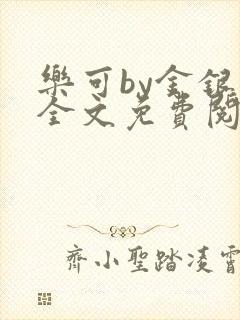 樂可by金銀
全文免費閱
齊小聖踏凌霄